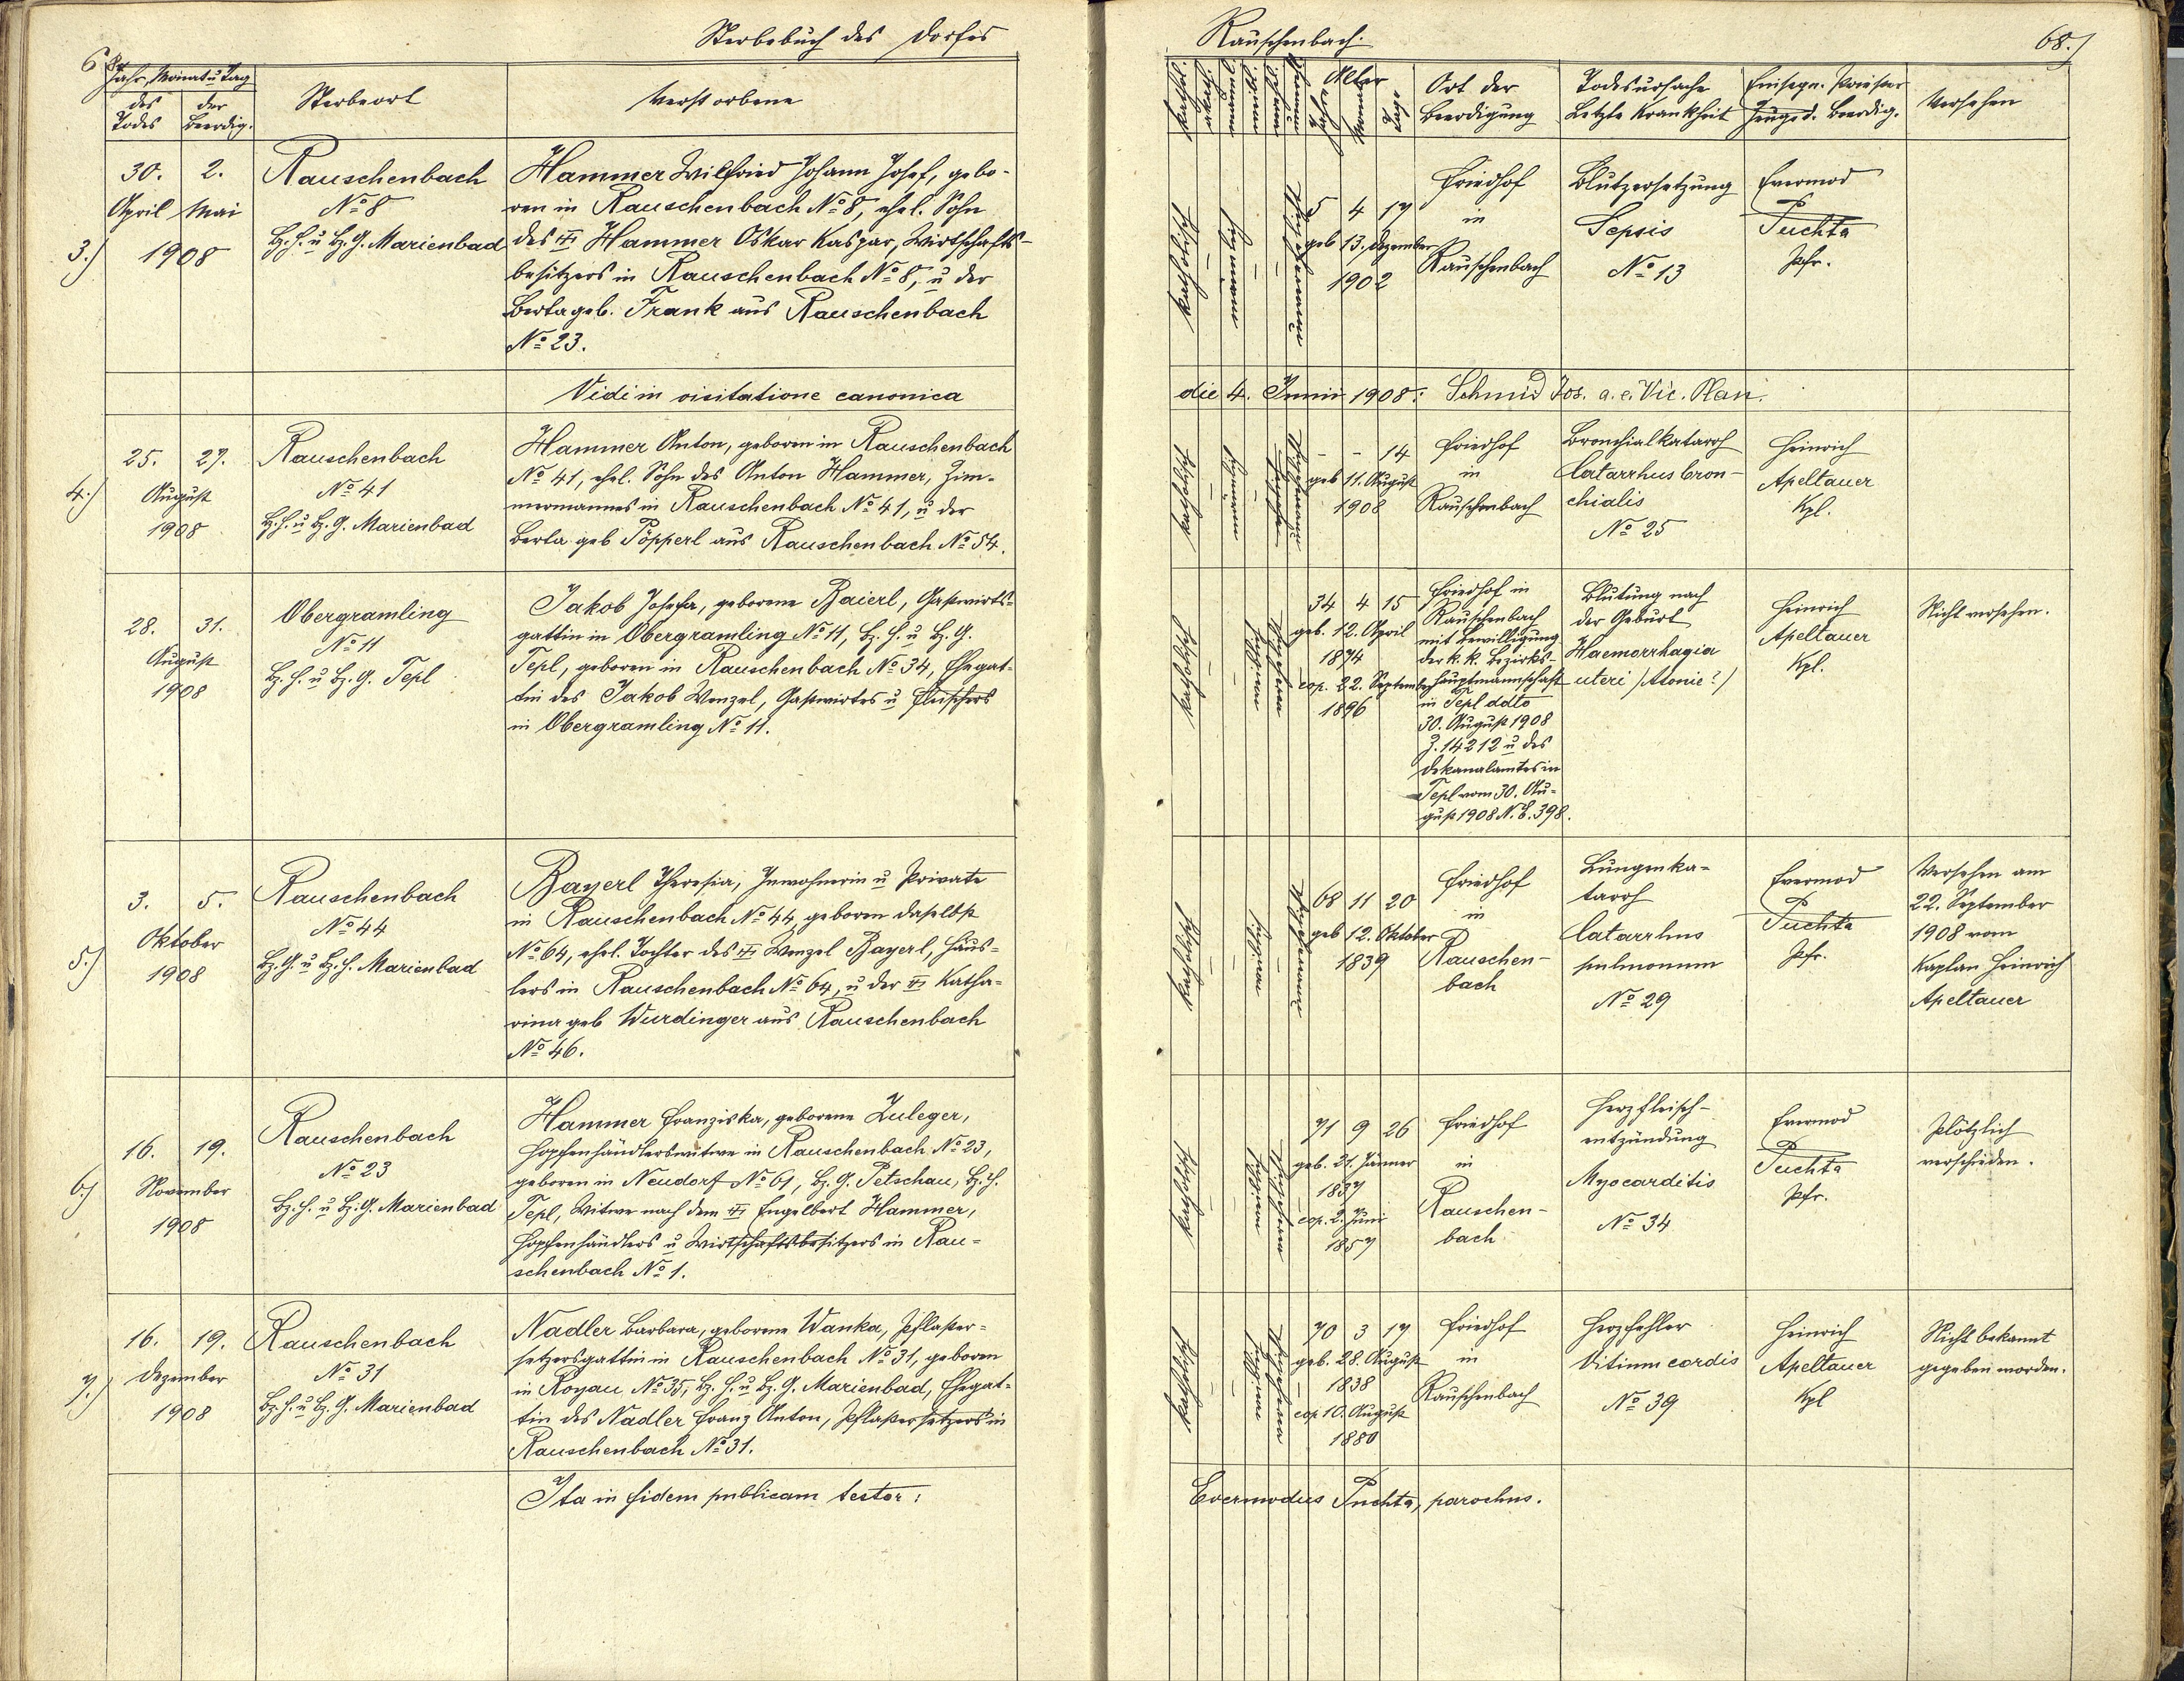 Sterbebuch des Dorfes
Rauschenbach.
68.)
Jahr, Monat u Tag
des Todes
der Beerdig.
Sterbeort
Verstorbene
Alter
Ort der Beerdigung
Todesursache
Letzte Krankheit
Einsegn. Priester
Versehen
3.)
30. 2.
April Mai
1908
Rauschenbach
No 8
Bz. H. u Bz. G. Marienbad
Hammer Wilfried Johann Josef, gebo-
ren in Rauschenbach No 8, ehel. Sohn
des Hammer Oskar Kaspar, Wirtschafts-
besitzers in Rauschenbach No 8, u der
Berta geb. Frank aus Rauschenbach
No 23.
katholisch
5 4 17
geb 13. Dezember
1902
Friedhof
in
Rauschenbach
Blutzersetzung
Sepsis
No 13
Evermod
Puchta
Pfr.
Vidi in visitatione canonica
die 4. Junii 1908: Schmid Jos. a. e. Vic. Plan.
4.)
25. 27.
August
1908
Rauschenbach
No 41
Bz. H. u Bz. G. Marienbad
Hammer Anton, geboren in Rauschenbach
No 41, ehel. Sohn des Anton Hammer, Zim-
mermannes in Rauschenbach No 41, u der
Berta geb Pöpperl aus Rauschenbach No 54.
katholisch
- - 14
geb 11. August
1908
Friedhof
in
Rauschenbach
Bronchialkatarrh
Catarrhus bron-
chialis
No 25
Heinrich
Apeltauer
Kpl.
28. 31.
August
1908
Obergramling
No 11
Bz. H. u Bz. G. Tepl
Jakob Josefa, geborene Baierl, Gastwirts-
gattin in Obergramling No 11, Bz. H. u Bz. G.
Tepl, geboren in Rauschenbach No 34, Ehegat-
tin des Jakob Wenzel, Gastwirtes u Fleischers
in Obergramling No 11.
katholisch
34 4 15
geb. 12. April
1874
cop. 22. September
1896
Friedhof in
Rauschenbach
mit Bewilligung
der k. k. Bezirks-
hauptmannschaft
in Tepl ddto
30. August 1908
Z. 14212 u des
Dekanalamtes in
Tepl vom 30. Au-
gust 1908 N. E. 398.
Blutung nach
der Geburt
Haemorrhagia
uteri (Atonie?)
Heinrich
Apeltauer
Kpl.
Nicht versehen.
5.)
3. 5.
Oktober
1908
Rauschenbach
No 44
Bz. G. u Bz. H. Marienbad
Bayerl Theresia, Inwohnerin u Private
in Rauschenbach No 44, geboren daselbst
No 64, ehel. Tochter des Wenzel Bayerl, Häus-
lers in Rauschenbach No 64, u der Katha-
rina geb Wurdinger aus Rauschenbach
No 46.
katholisch
68 11 20
geb 12. Oktober
1839
Friedhof
in
Rauschen-
bach
Lungenka-
tarrh
Catarrhus
pulmonum
No 29
Evermod
Puchta
Pfr.
Versehen am
22. September
1908 vom
Kaplan Heinrich
Apeltauer
6.)
16. 19.
November
1908
Rauschenbach
No 23
Bz. H. u Bz. G. Marienbad
Hammer Franziska, geborene Zuleger,
Hopfenhändlerswitwe in Rauschenbach No 23,
geboren in Neudorf No 61, Bz. G. Petschau, Bz. H.
Tepl, Witwe nach dem Engelbert Hammer,
Hopfenhändlers u Wirtschaftsbesitzers in Rau-
schenbach No 1.
katholisch
71 9 26
geb. 21. Jänner
1837
cop. 2. Juni
1857
Friedhof
in
Rauschen-
bach
Herzfleisch-
entzündung
Myocarditis
No 34
Evermod
Puchta
Pfr.
Plötzlich
verschieden.
7.)
16. 19.
Dezember
1908
Rauschenbach
No 31
Bz. H. u Bz. G. Marienbad
Nadler Barbara, geborene Wanka, Pflaster-
setzersgattin in Rauschenbach No 31, geboren
in Royau No 35, Bz. H. u Bz. G. Marienbad, Ehegat-
tin des Nadler Franz Anton, Pflastersetzers in
Rauschenbach No 31.
katholisch
70 3 17
geb. 28. August
1838
cop 10. August
1880
Friedhof
in
Rauschenbach
Herzfehler
Vitium cordis
No 39
Heinrich
Apeltauer
Kpl
Nicht bekannt
gegeben worden.
Ita in fidem publicam testor:
Evermodus Puchta, parochus.